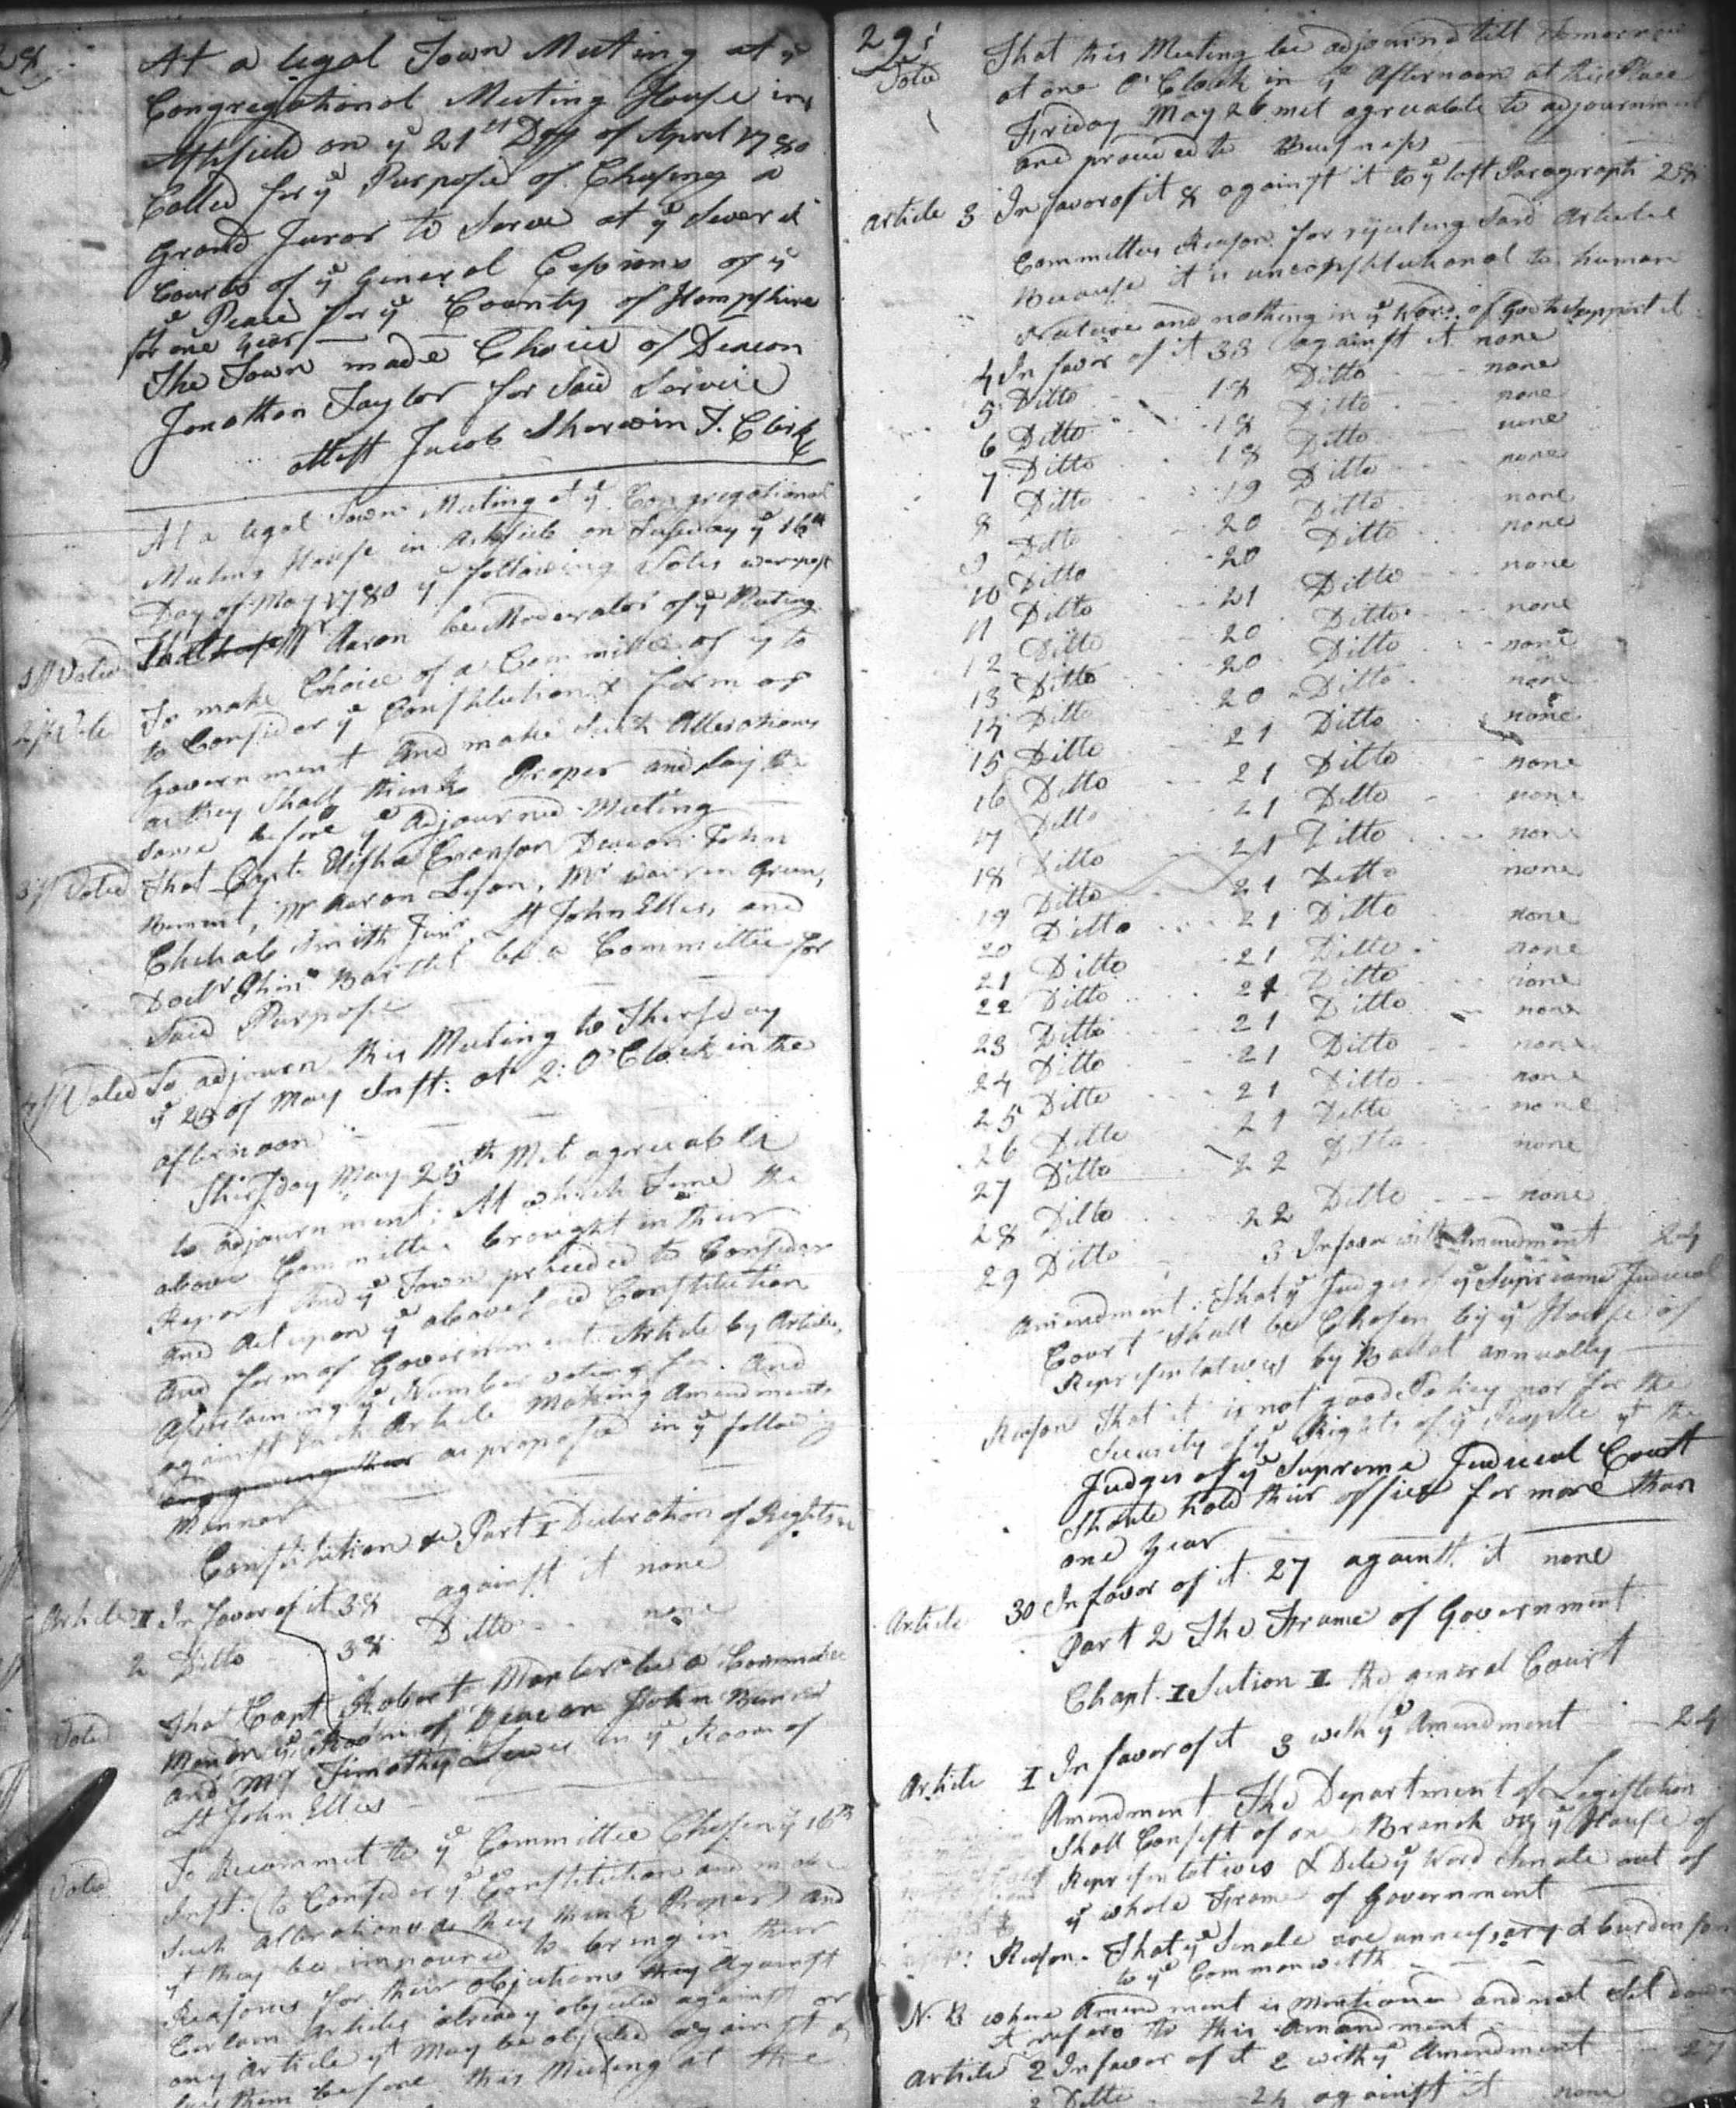 28
At a legal Town Meeting at ye
Congregational Meeting House in
Ashfield on ye 21st Day of April 1780
Called for ye Purpose of Chusing a
Grand Juror to Serve at ye Several
Courts of ye General Sessions of ye
ye Peace for ye County of Hampshire
for one Year
The Town made Choice of Deacon
Jonathan Taylor for Said Service
attest Jacob Sherwin T. Clerk
At a legal Town Meeting at ye Congregational
Meeting House in Ashfield on Tuesday ye 16th
Day of May 1780 ye following Votes were past
1st Voted That Mr Aaron be Moderator of ye Meeting
2 Vote To make Choice of a Committee of 7 to
to Consider ye Constitution & form of
Government and make Such Alterations
as they Shall think Proper and lay the
Same before ye adjourned Meeting
3 Voted That Capt. Elisha Cranson Deacon John
Bement, Mr Aaron Lyon, Mr Warren Green,
Chehab Smith Junr, Lt John Ellis, and
Doctr Phins Bartlet be a Committee for
Said Purpose
4 Voted To adjourn this Meeting to Thursday
ye 25 of May Inst: at 2: O'Clock in the
afternoon
Thursday May 25th Met agreeable
to adjournment; At which Time the
above Committee brought in their
Report And ye Town proceeded to Consider
and Act upon ye abovesaid Constitution
and form of Government Article by Article,
Assertaining ye Number voting for and
against Each Article Making Amendments
as proposed in ye following
Manner
Constitution & Part I Decleration of Rights
Article I In favor of it 38 against it none
2 Ditto 38 Ditto none
Voted That Capt Robert be a Committee
Man in ye Room of Deacon John Bement
and Mr Timothy Lewis in ye Room of
Lt John Ellis
Voted To Recommit to ye Committee Chosen ye 16th
Inst: (to Consider ye Constitution and make
Such alterations as they think Proper) and
yt they be impowred to bring in their
Reasons for their objections against
Certain Articles already objected against or
any Article yt may be objected against &
lay them before this Meeting at the
29
Voted That this Meeting be adjournd till Tomorrow
at one O'Clock in ye Afternoon at this Place
Friday May 26 met agreeable to adjournment
and proceeded to Business
Article 3 In favor of it 8 against it to ye last Paragraph 28
Committees Reason for rejecting Said Article
Because it is unconstitutional to human
Nature and nothing in ye Word of God to Support it
4 In favor of it 33 against it none
5 Ditto 18 Ditto none
6 Ditto 18 Ditto none
7 Ditto 18 Ditto none
8 Ditto 19 Ditto none
9 Ditto 20 Ditto none
10 Ditto 20 Ditto none
11 Ditto 21 Ditto none
12 Ditto 20 Ditto none
13 Ditto 20 Ditto none
14 Ditto 20 Ditto none
15 Ditto 21 Ditto none
16 Ditto 21 Ditto none
17 Ditto 21 Ditto none
18 Ditto 21 Ditto none
19 Ditto 21 Ditto none
20 Ditto 21 Ditto none
21 Ditto 21 Ditto none
22 Ditto 21 Ditto none
23 Ditto 21 Ditto none
24 Ditto 21 Ditto none
25 Ditto 21 Ditto none
26 Ditto 21 Ditto none
27 Ditto 22 Ditto none
28 Ditto 22 Ditto none
29 Ditto 3 In favor with Amendment 24
Amendment: That ye Judges of ye Supreme Judicial
Court Shall be Chosen by ye House of
Representatives by Ballot annually
Reason That it is not good Policy nor for the
Security of ye Rights of ye People yt the
Judges of ye Supreme Judicial Court
Should hold their office for more than
one Year
Article 30 In favor of it 27 against it none
Part 2 The Frame of Government
Chapt. I Section I the general Court
Article I In favor of it 3 with ye Amendment 24
Amendment The Department of Legislation
Shall Consist of one Branch viz ye House of
Representatives & Dele ye Word Senate out of
ye whole Frame of Government
Reason. That ye Senate are unnecessary & burdensom
to ye Commonwelth
N.B where Amendment is Mentioned and not Set down
it refers to this Amandment
Article 2 In favor of it 2 with ye Amendment 27
3 Ditto 24 against it none